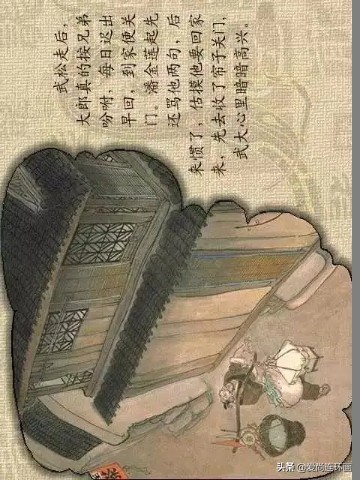 武松走后,
大郎真的按兄弟
吩咐,每日迟出
早回,到家便关
门。潘金莲起先
还骂他两句,后
来惯了,估摸他要回家
来,先去收了帘子关门,
武大心里暗暗高兴。
头条 @爱尚连环画